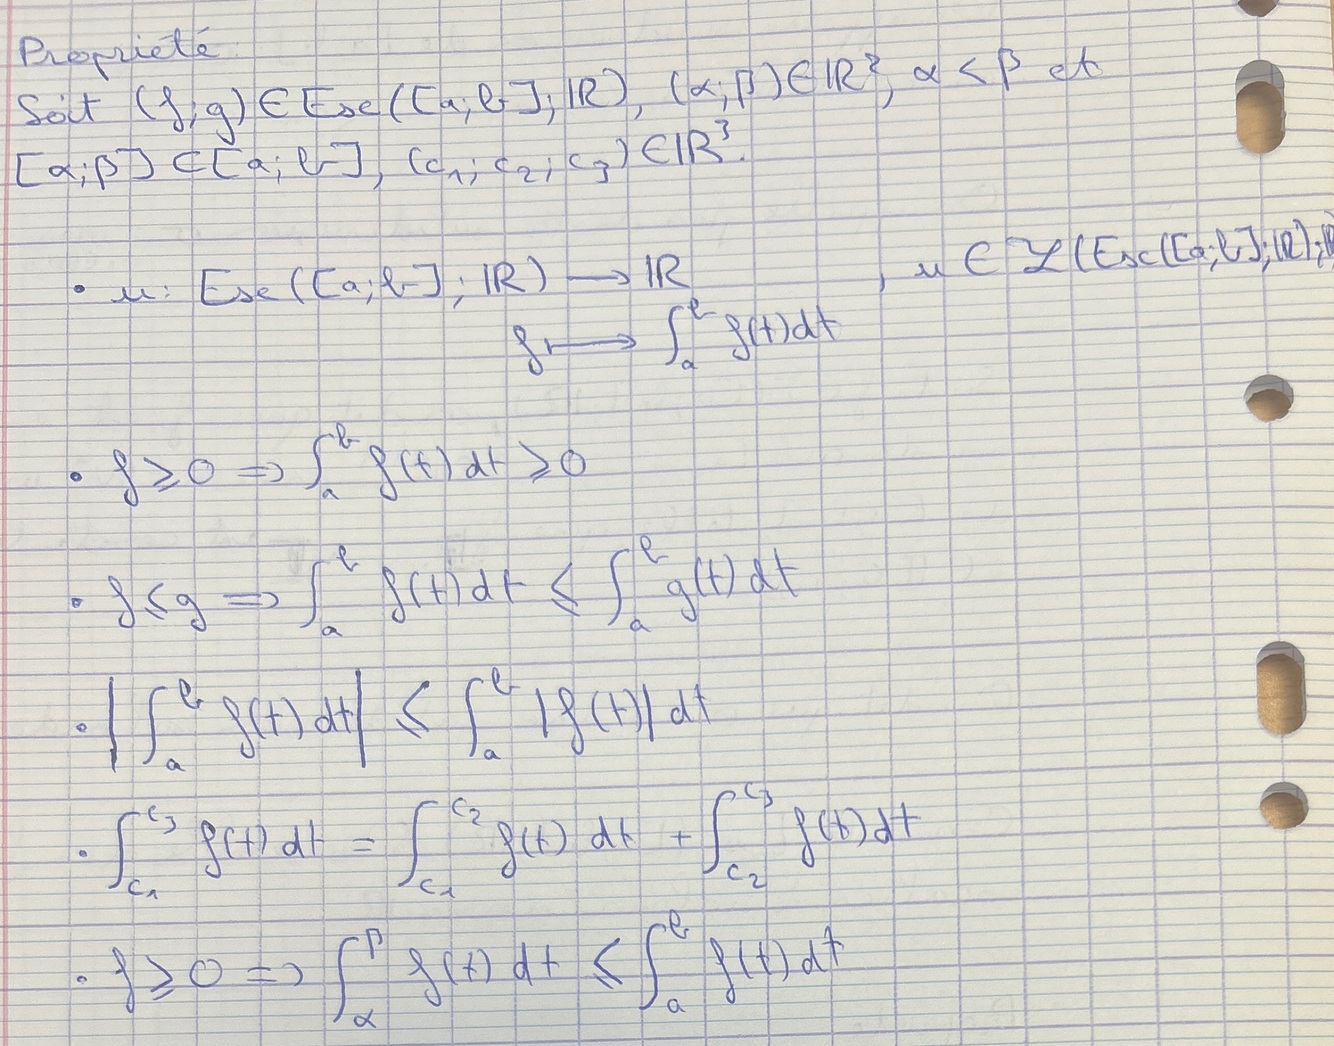 Propriété
Soit (f;g) ∈ Esc([a;b];ℝ), (α;β) ∈ ℝ², α < β et
[α;β] ⊂ [a;b], (c₁; c₂; c₃) ∈ ℝ³.
• u: Esc([a;b];ℝ) → ℝ , u ∈ ℒ(Esc([a;b];ℝ);ℝ
f ↦ ∫ₐᵇ f(t)dt
• f ≥ 0 => ∫ₐᵇ f(t) dt ≥ 0
• f ≤ g => ∫ₐᵇ f(t) dt ≤ ∫ₐᵇ g(t) dt
• |∫ₐᵇ f(t) dt| ≤ ∫ₐᵇ |f(t)| dt
• ∫_{c₁}^{c₃} f(t) dt = ∫_{c₁}^{c₂} f(t) dt + ∫_{c₂}^{c₃} f(t) dt
• f ≥ 0 => ∫_α^β f(t) dt ≤ ∫ₐᵇ f(t) dt